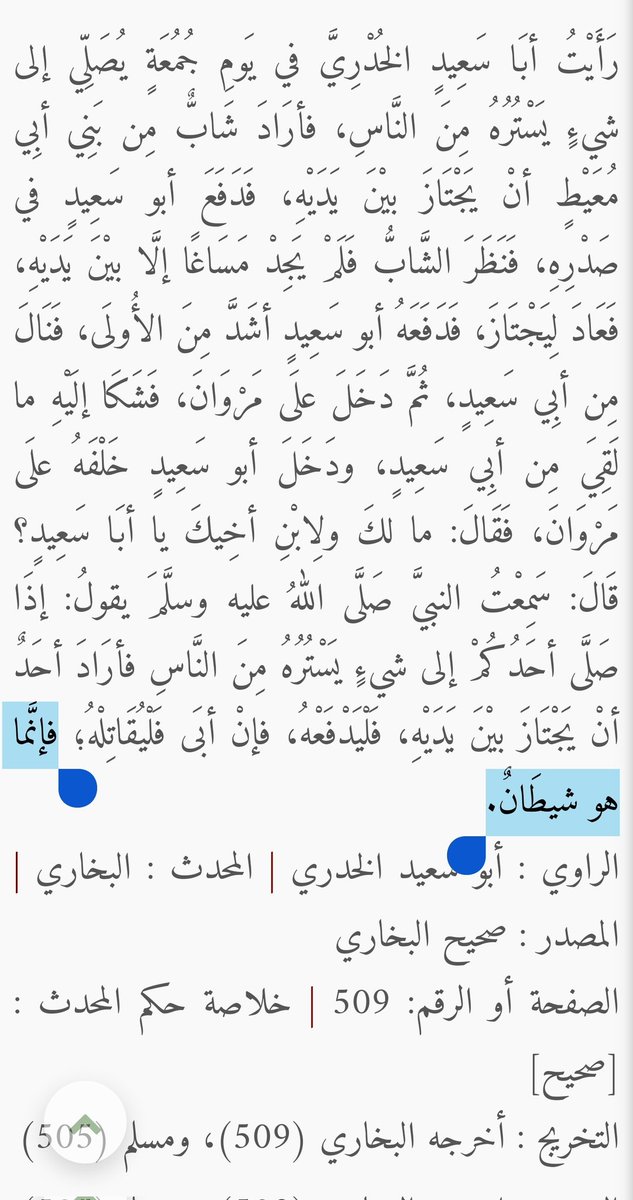 رَأَيْتُ أبَا سَعِيدٍ الخُدْرِيَّ في يَومِ جُمُعَةٍ يُصَلِّي إلى
شيءٍ يَسْتُرُهُ مِنَ النَّاسِ، فأرَادَ شَابٌّ مِن بَنِي أبِي
مُعَيْطٍ أنْ يَجْتَازَ بيْنَ يَدَيْهِ، فَدَفَعَ أبو سَعِيدٍ في
صَدْرِهِ، فَنَظَرَ الشَّابُّ فَلَمْ يَجِدْ مَسَاغًا إلَّا بيْنَ يَدَيْهِ،
فَعَادَ لِيَجْتَازَ، فَدَفَعَهُ أبو سَعِيدٍ أشَدَّ مِنَ الأُولَى، فَنَالَ
مِن أبِي سَعِيدٍ، ثُمَّ دَخَلَ علَى مَرْوَانَ، فَشَكَا إلَيْهِ ما
لَقِيَ مِن أبِي سَعِيدٍ، ودَخَلَ أبو سَعِيدٍ خَلْفَهُ علَى
مَرْوَانَ، فَقَالَ: ما لكَ ولِابْنِ أخِيكَ يا أبَا سَعِيدٍ؟
قَالَ: سَمِعْتُ النبيَّ صَلَّى اللهُ عليه وسلَّمَ يقولُ: إذَا
صَلَّى أحَدُكُمْ إلى شيءٍ يَسْتُرُهُ مِنَ النَّاسِ فأرَادَ أحَدٌ
أنْ يَجْتَازَ بيْنَ يَدَيْهِ، فَلْيَدْفَعْهُ، فإنْ أبَى فَلْيُقَاتِلْهُ؛ فإنَّما
هو شيطَانٌ.
الراوي : أبو سعيد الخدري | المحدث : البخاري |
المصدر : صحيح البخاري
الصفحة أو الرقم: 509 | خلاصة حكم المحدث :
[صحيح]
التخريج : أخرجه البخاري (509)، ومسلم (505)